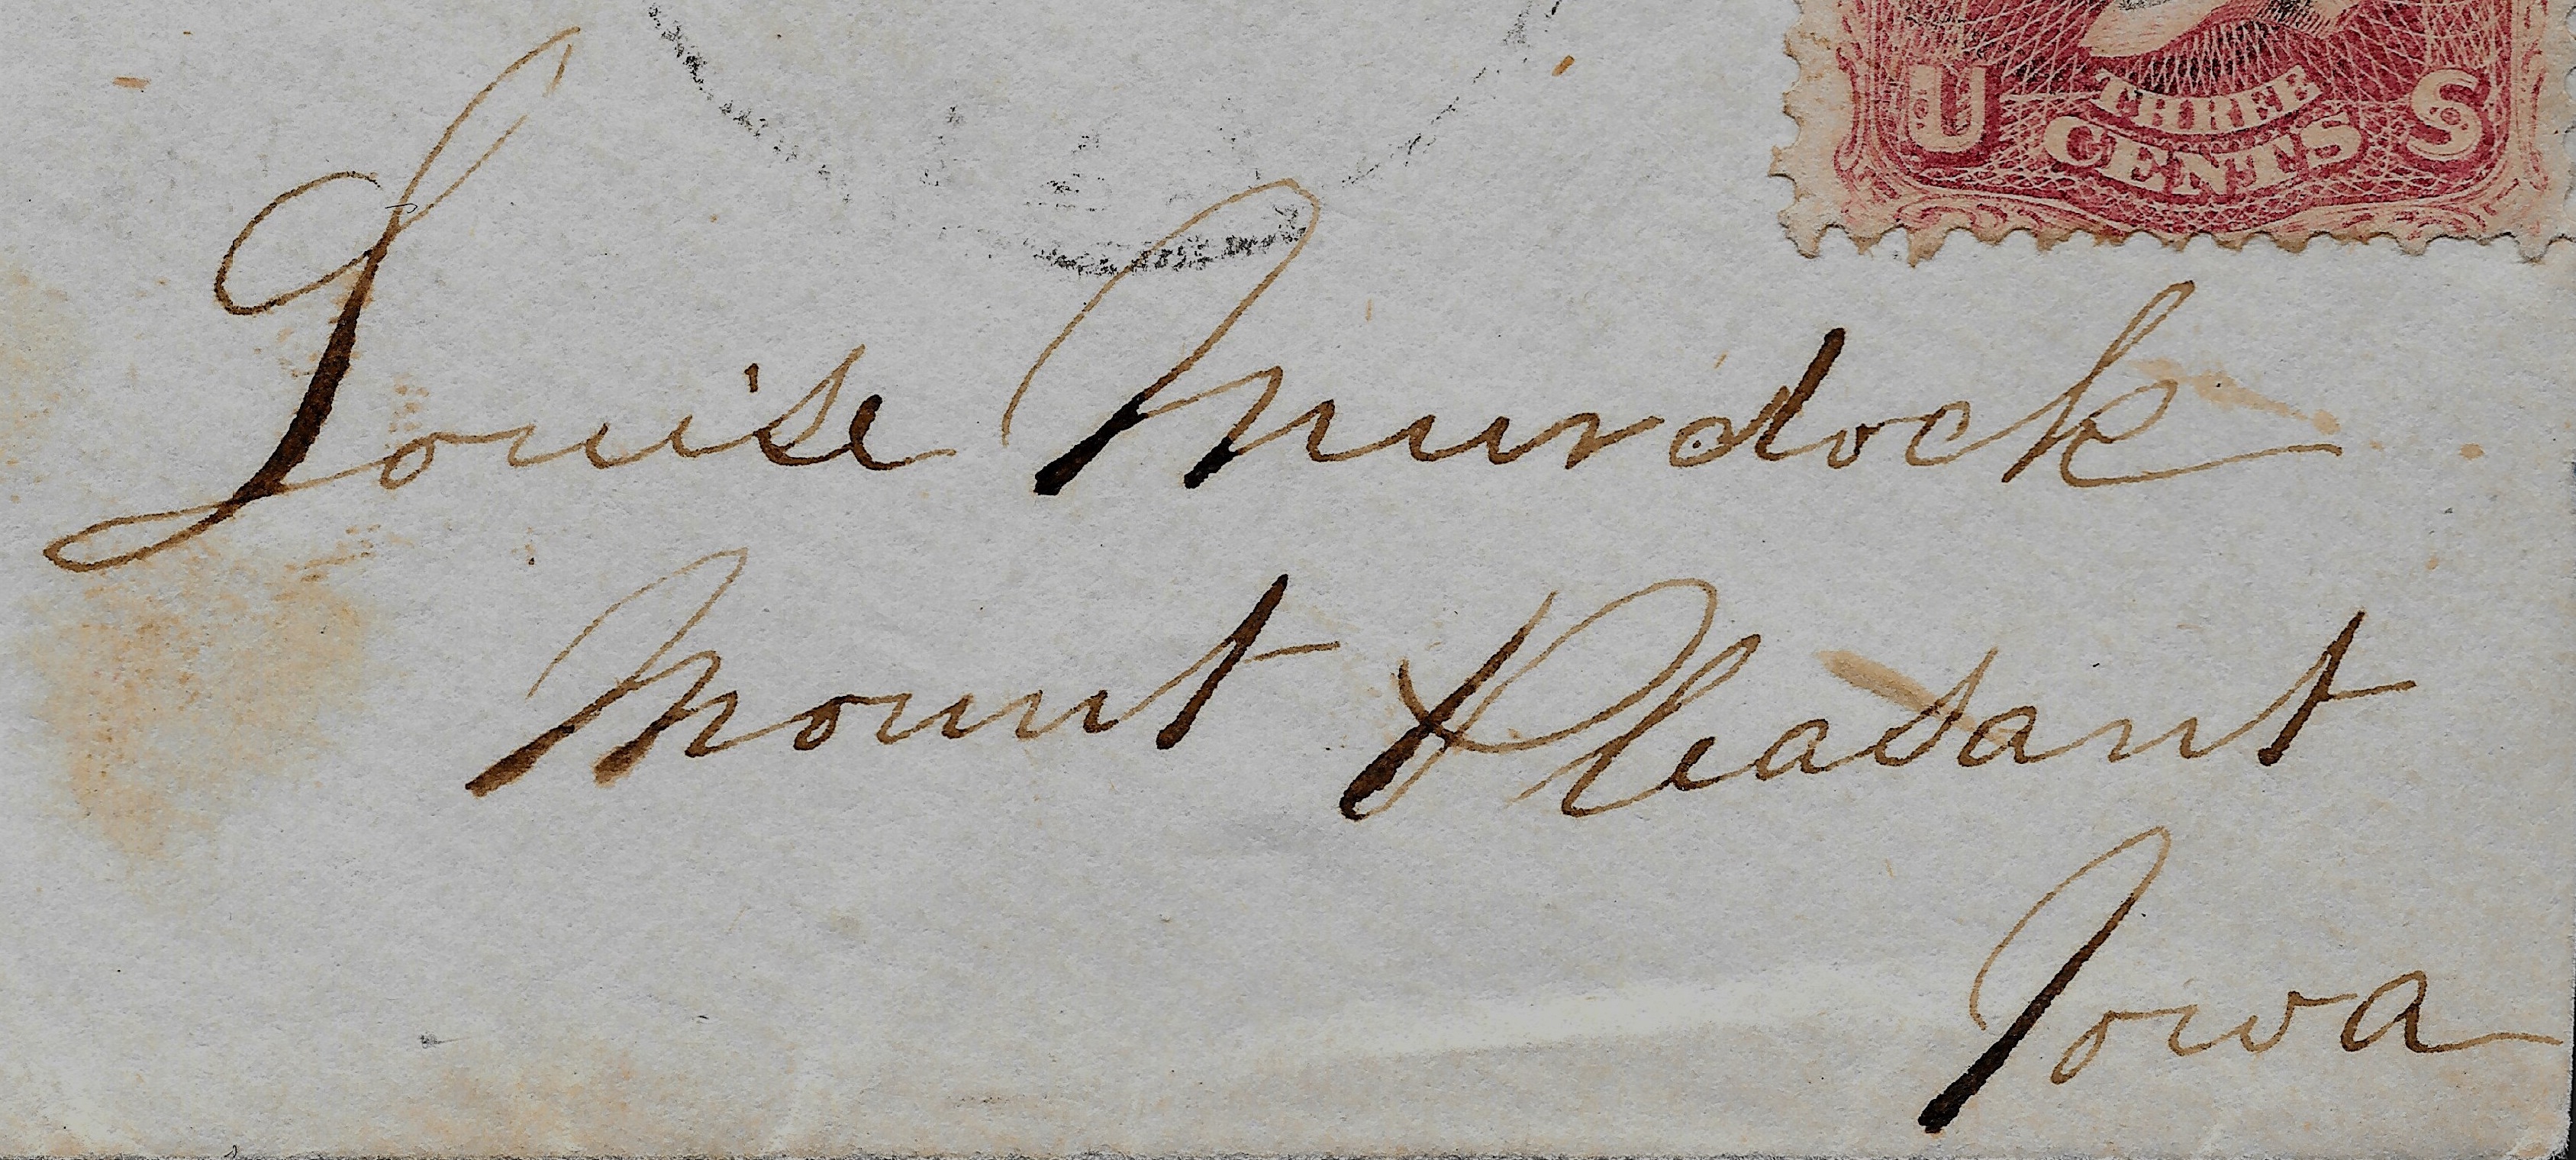 U S
THREE
CENTS
Louise Murdock
Mount Pleasant
Iowa